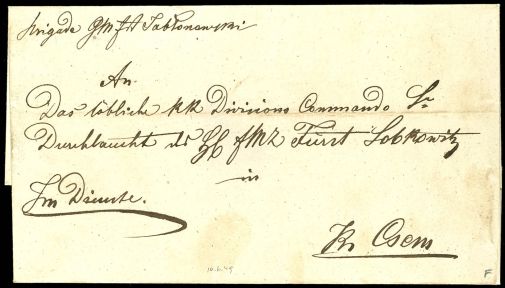 Brigade GM fst Jablonowski
An
Das löbliche kk Divisions Commando Sr
Durchlaucht des H fMz Fürst Lobkowitz
in
Im Dienste.
Kr Osem
10.6.49
F